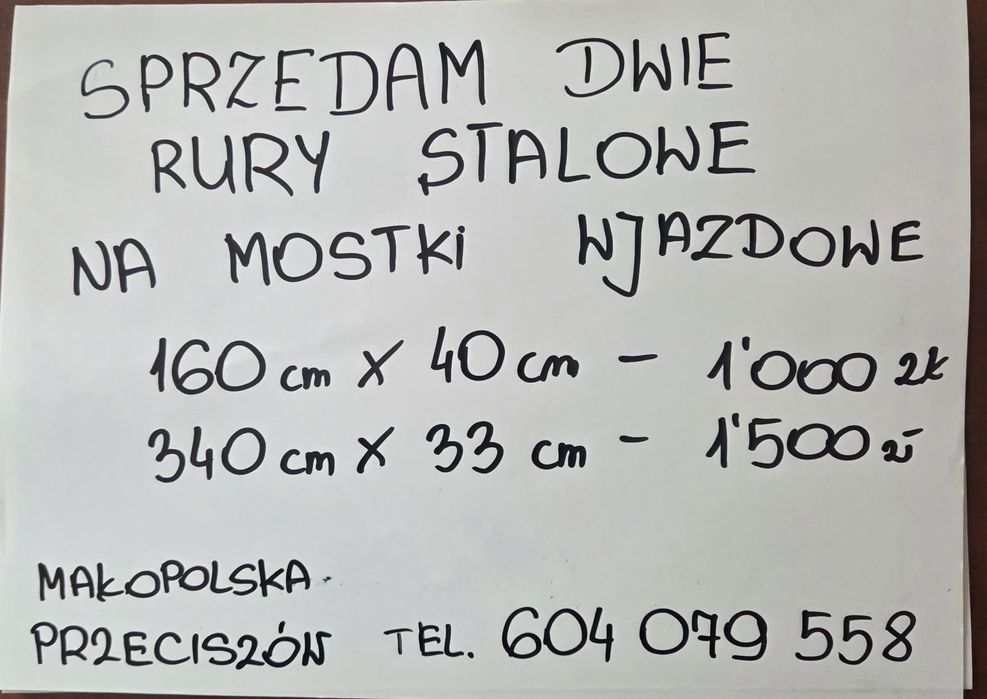 SPRZEDAM DWIE
RURY STALOWE
NA MOSTKi WJAZDOWE
160 cm X 40 cm - 1'000 zł
340 cm X 33 cm - 1'500 zł
MAŁOPOLSKA
PRZECISZÓW TEL. 604 079 558